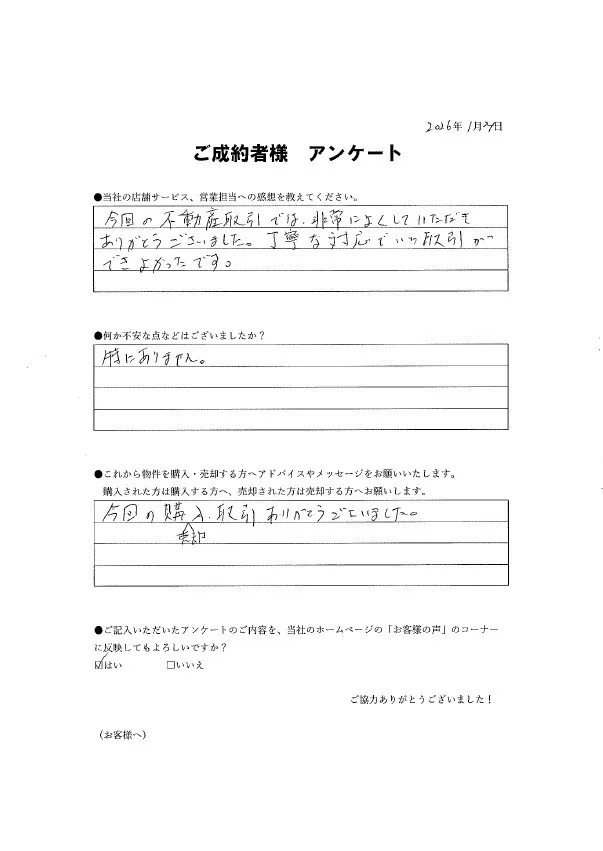 2026年 1月27日
ご成約者様 アンケート
●当社の店舗サービス、営業担当への感想を教えてください。
今回の不動産取引では、非常によくしていただき
ありがとうございました。丁寧な対応でいい取引が
できよかったです。
●何か不安な点などはございましたか？
特にありません。
●これから物件を購入・売却する方へアドバイスやメッセージをお願いいたします。
購入された方は購入する方へ、売却された方は売却する方へお願いします。
今回の購入、取引ありがとうございました。
売却
●ご記入いただいたアンケートのご内容を、当社のホームページの「お客様の声」のコーナー
に反映してもよろしいですか？
☑はい □いいえ
ご協力ありがとうございました！
（お客様へ）